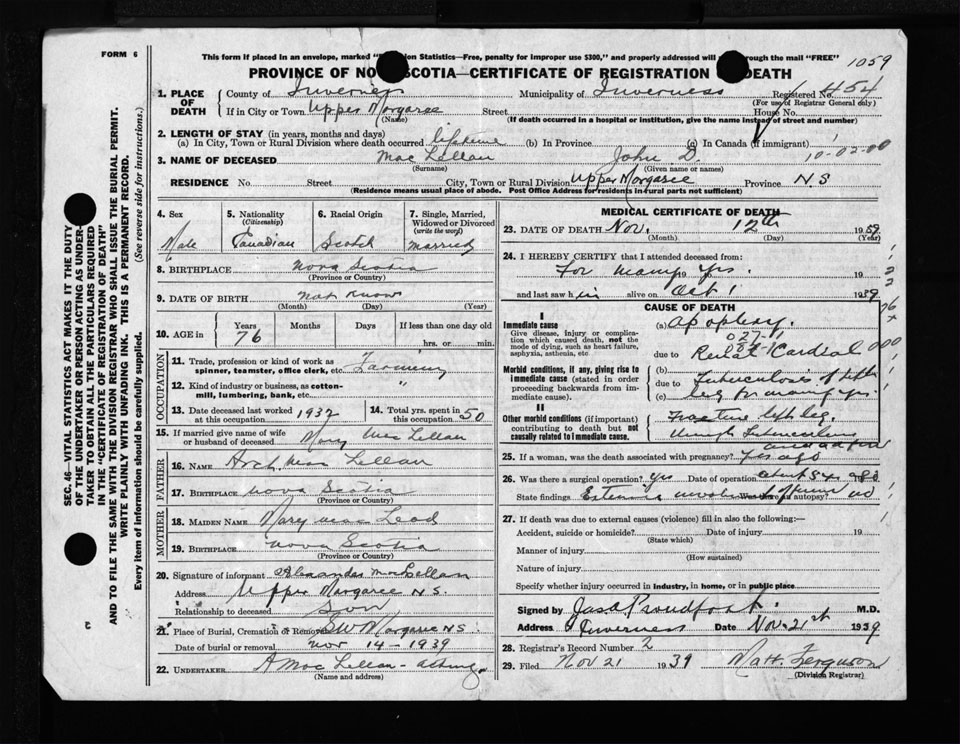 FORM 6
This form if placed in an envelope, marked "Statistics—Free, penalty for improper use $300," and properly addressed will through the mail "FREE"
1059
PROVINCE OF NO SCOTIA—CERTIFICATE OF REGISTRATION DEATH
1. PLACE OF DEATH
County of Inverness Municipality of Inverness Registered No. 454
(For use of Registrar General only)
If in City or Town Upper Margaree Street House No.
(Name) (If death occurred in a hospital or institution, give the name instead of street and number)
2. LENGTH OF STAY (in years, months and days)
(a) In City, Town or Rural Division where death occurred lifetime (b) In Province (c) In Canada (if immigrant)
10-02-00
3. NAME OF DECEASED Mac Lellan John D.
(Surname) (Given name or names)
RESIDENCE No. Street City, Town or Rural Division Upper Margaree Province N.S
(Residence means usual place of abode. Post Office Address for residents in rural parts not sufficient)
4. Sex Male
5. Nationality (Citizenship) Canadian
6. Racial Origin Scotch
7. Single, Married, Widowed or Divorced (write the word) married
8. BIRTHPLACE Nova Scotia
(Province or Country)
9. DATE OF BIRTH not know
(Month) (Day) (Year)
10. AGE in Years 76 Months Days If less than one day old hrs. or min.
OCCUPATION
11. Trade, profession or kind of work as spinner, teamster, office clerk, etc. Farming
12. Kind of industry or business, as cotton-mill, lumbering, bank, etc. "
13. Date deceased last worked at this occupation 1932
14. Total yrs. spent in this occupation 50
15. If married give name of wife or husband of deceased Mary Mac Lellan
FATHER
16. NAME Arch. Mac Lellan
17. BIRTHPLACE Nova Scotia
(Province or Country)
MOTHER
18. MAIDEN NAME Mary Mac Leod
19. BIRTHPLACE Nova Scotia
(Province or Country)
20. Signature of informant Alexander MacLellan
Address Upper Margaree N.S.
Relationship to deceased Son
21. Place of Burial, Cremation or Removal S.W Margaree N.S.
Date of burial or removal Nov 14 - 1939
22. UNDERTAKER A Mac Lellan -
(Name and address)
MEDICAL CERTIFICATE OF DEATH
23. DATE OF DEATH Nov. 12th 1939
(Month) (Day) (Year)
24. I HEREBY CERTIFY that I attended deceased from:
For many yrs. 19 19
and last saw him alive on Oct 1 1939
CAUSE OF DEATH
I
Immediate cause
Give disease, injury or complication which caused death, not the mode of dying, such as heart failure, asphyxia, asthenia, etc.
Morbid conditions, if any, giving rise to immediate cause (stated in order proceeding backwards from immediate cause).
II
Other morbid conditions (if important) contributing to death but not causally related to immediate cause.
(a) apoplexy.
027-1
due to Renal Cardial
(b)
due to Tuberculosis of left
(c) leg for many yrs.
Fracture left leg.
25. If a woman, was the death associated with pregnancy? yrs ago
26. Was there a surgical operation? yes Date of operation
State findings Was there an autopsy? no
27. If death was due to external causes (violence) fill in also the following:—
Accident, suicide or homicide? Date of injury 19
(State which)
Manner of injury
(How sustained)
Nature of injury
Specify whether injury occurred in industry, in home, or in public place
Signed by Jas A Proudfoot M.D.
Address Inverness Date Nov. 21st 1939
28. Registrar's Record Number 2
29. Filed Nov 21 1939 Matt. Ferguson
(Division Registrar)
SEC. 46—VITAL STATISTICS ACT MAKES IT THE DUTY OF THE UNDERTAKER OR PERSON ACTING AS UNDERTAKER TO OBTAIN ALL THE PARTICULARS REQUIRED IN THE "CERTIFICATE OF REGISTRATION OF DEATH"
AND TO FILE THE SAME WITH THE DIVISION REGISTRAR WHO SHALL ISSUE THE BURIAL PERMIT.
WRITE PLAINLY WITH UNFADING INK. THIS IS A PERMANENT RECORD.
Every item of information should be carefully supplied. (See reverse side for instructions.)